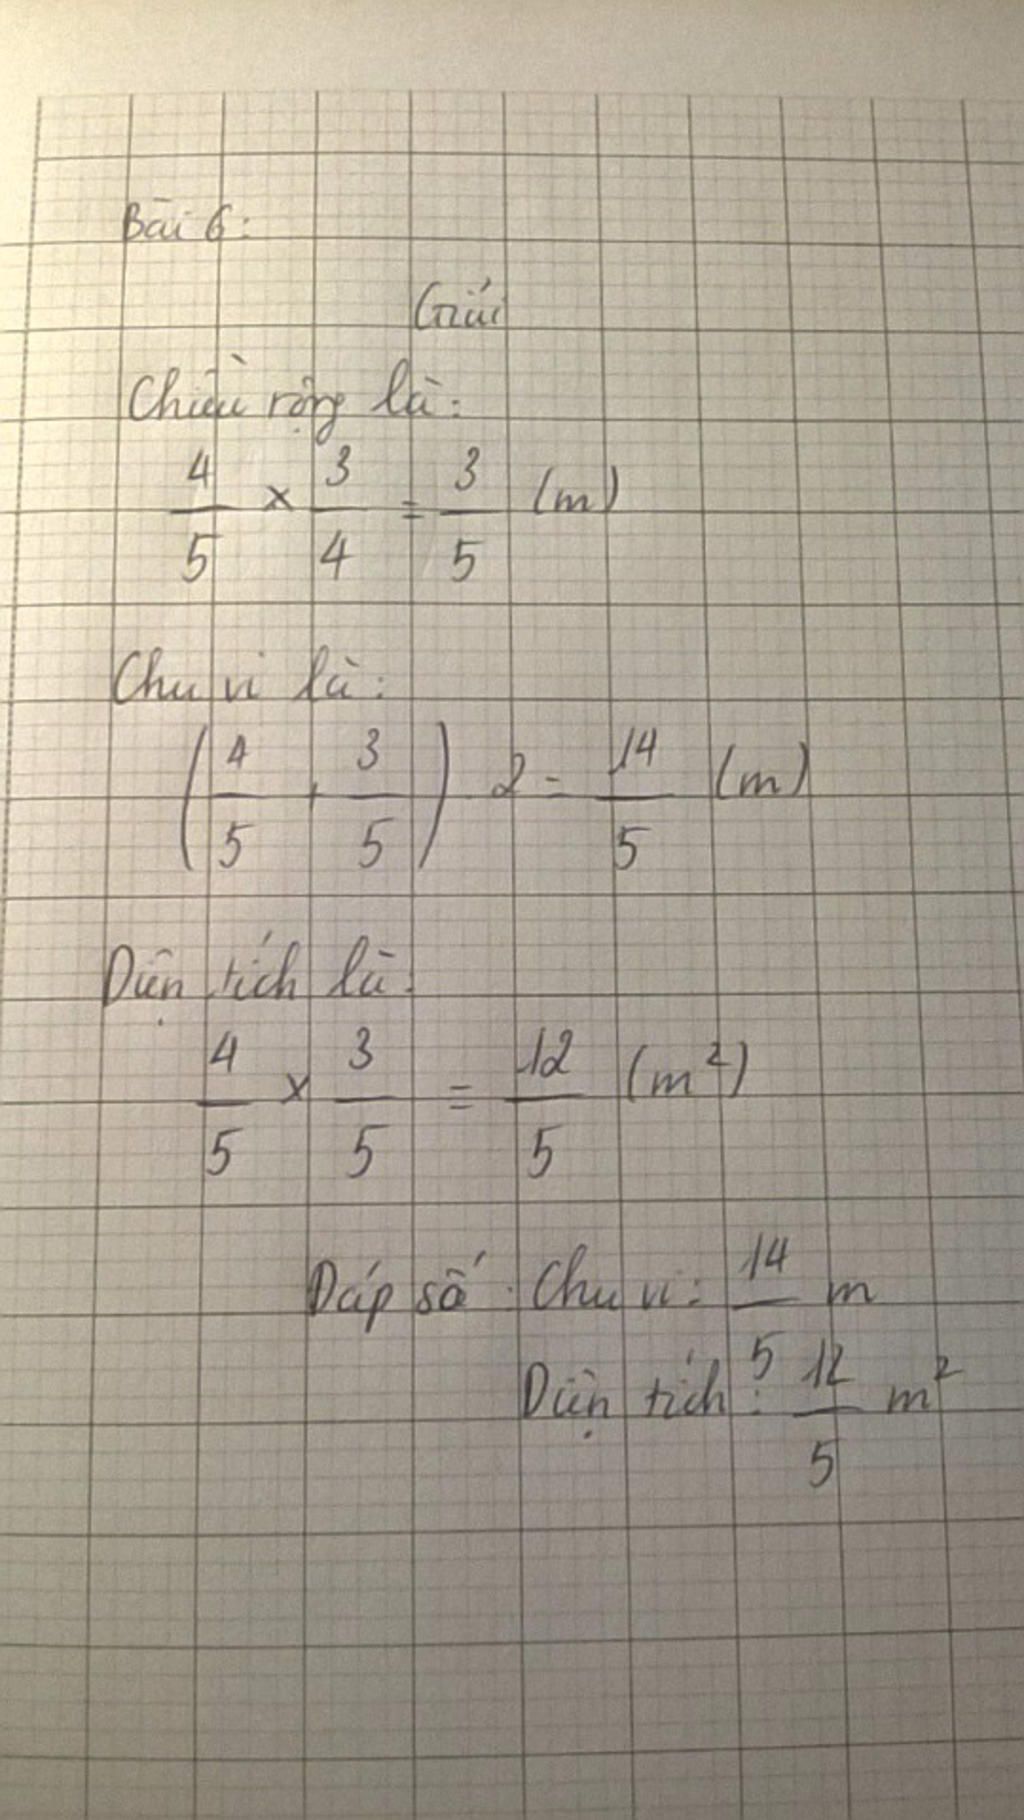 Bài 6:
Giải
Chiều rộng là:
4/5 × 3/4 = 3/5 (m)
Chu vi là:
(4/5 + 3/5) 2 = 14/5 (m)
Diện tích là:
4/5 × 3/5 = 12/5 (m²)
Đáp số: Chu vi: 14/5 m
Diện tích: 12/5 m²